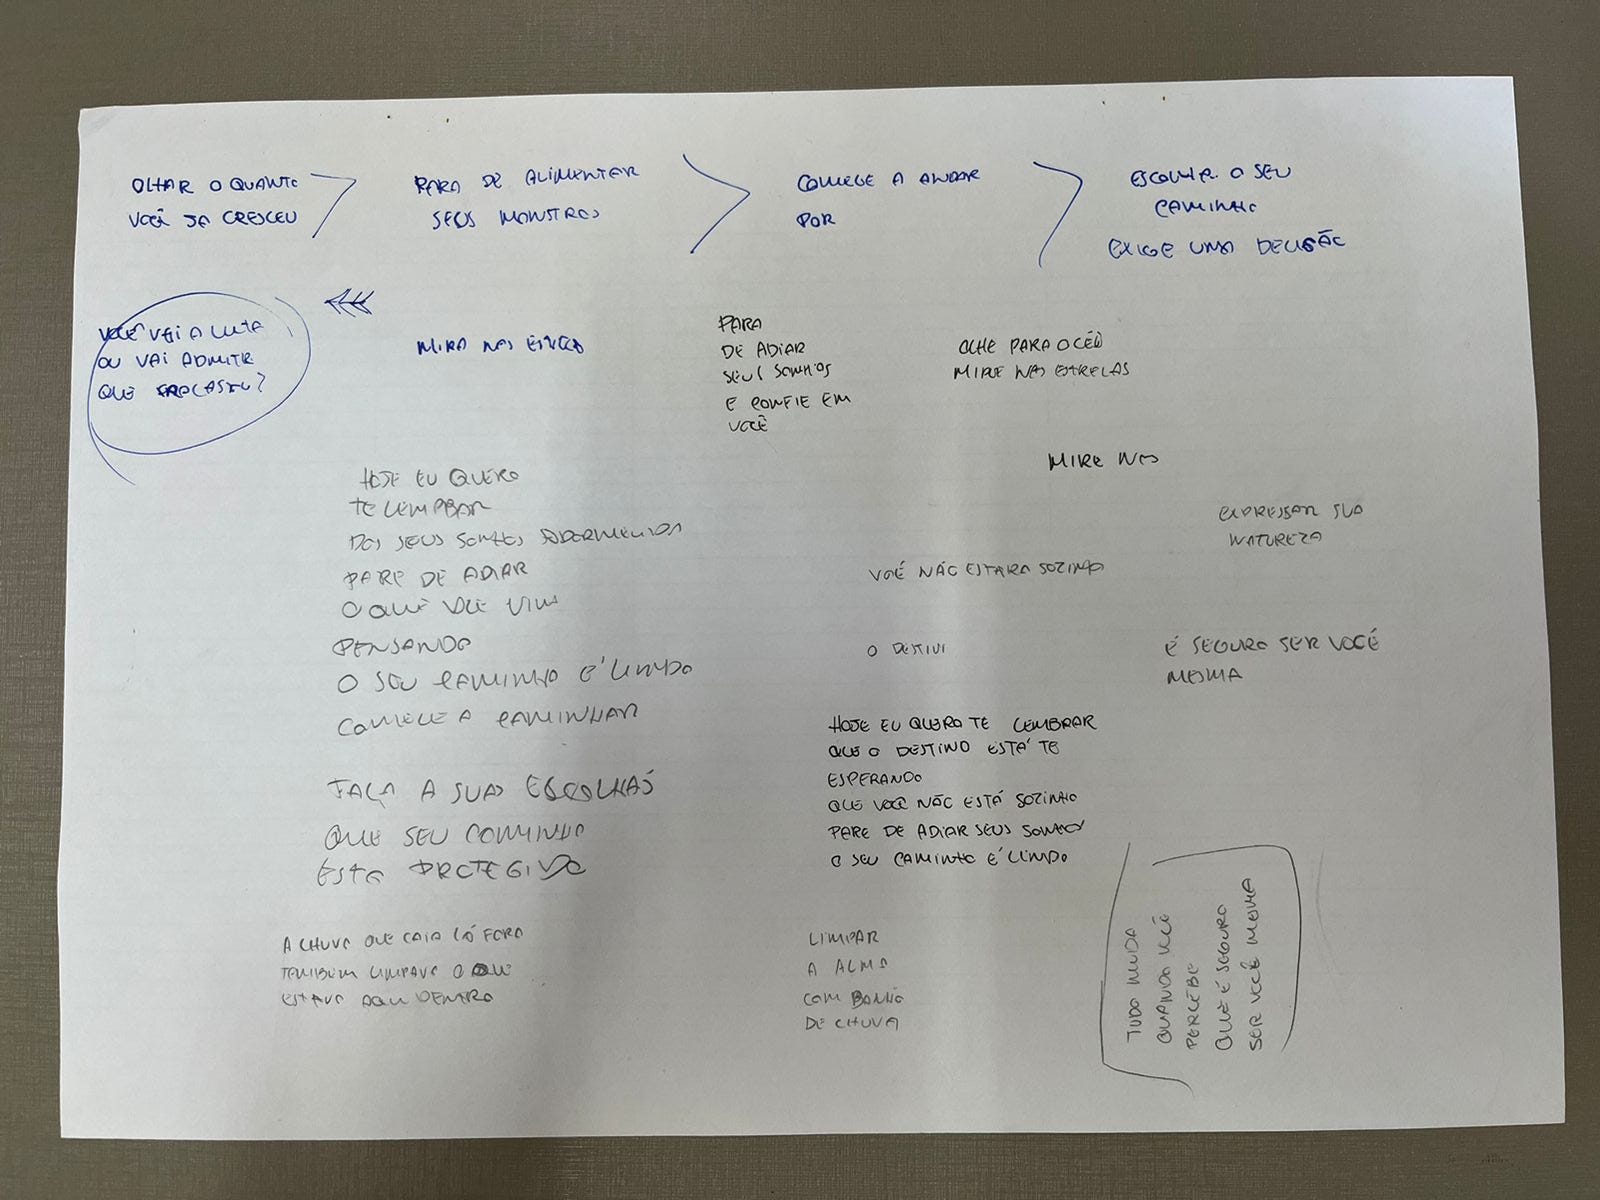 OLHAR O QUANTO
VOCÊ JA CRESCEU
PARA DE ALIMENTAR
SEUS MONSTROS
COMECE A ANDAR
POR
O SEU
CAMINHO
EXIGE UMA DECISÃO
VOCÊ VAI A LUTA
OU VAI ADMITIR
QUE FRACASSOU?
MIRA NAS
PARA
DE ADIAR
SEUS SONHOS
E CONFIE EM
VOCÊ
OLHE PARA O CÉU
MIRE NAS ESTRELAS
MIRE NAS
EXPRESSAR SUA
NATUREZA
HOJE EU QUERO
TE LEMBRAR
DOS SEUS SONHOS ADORMECIDOS
PARE DE ADIAR
O QUE VOCE VIVE
PENSANDO
O SEU CAMINHO É LINDO
COMECE A CAMINHAR
VOCÊ NÃO ESTARA SOZINHO
O DESTINI
É SEGURO SER VOCÊ
MESMA
FAÇA A SUAS ESCOLHAS
QUE SEU COMINHO
ESTA PROTEGIDO
HOJE EU QUERO TE LEMBRAR
QUE O DESTINO ESTÁ TE
ESPERANDO
QUE VOCÊ NÃO ESTÁ SOZINHO
PARE DE ADIAR SEUS SONHOS
O SEU CAMINHO É LINDO
A CHUVA QUE CAIA LÁ FORA
TAMBEM LIMPAVA O QUE
ESTAVA AQUI DENTRO
LIMPAR
A ALMA
COM BANHO
DE CHUVA
TUDO MUDA
QUANDO VOCÊ
PERCEBE
QUE É SEGURO
SER VOCÊ MESMA